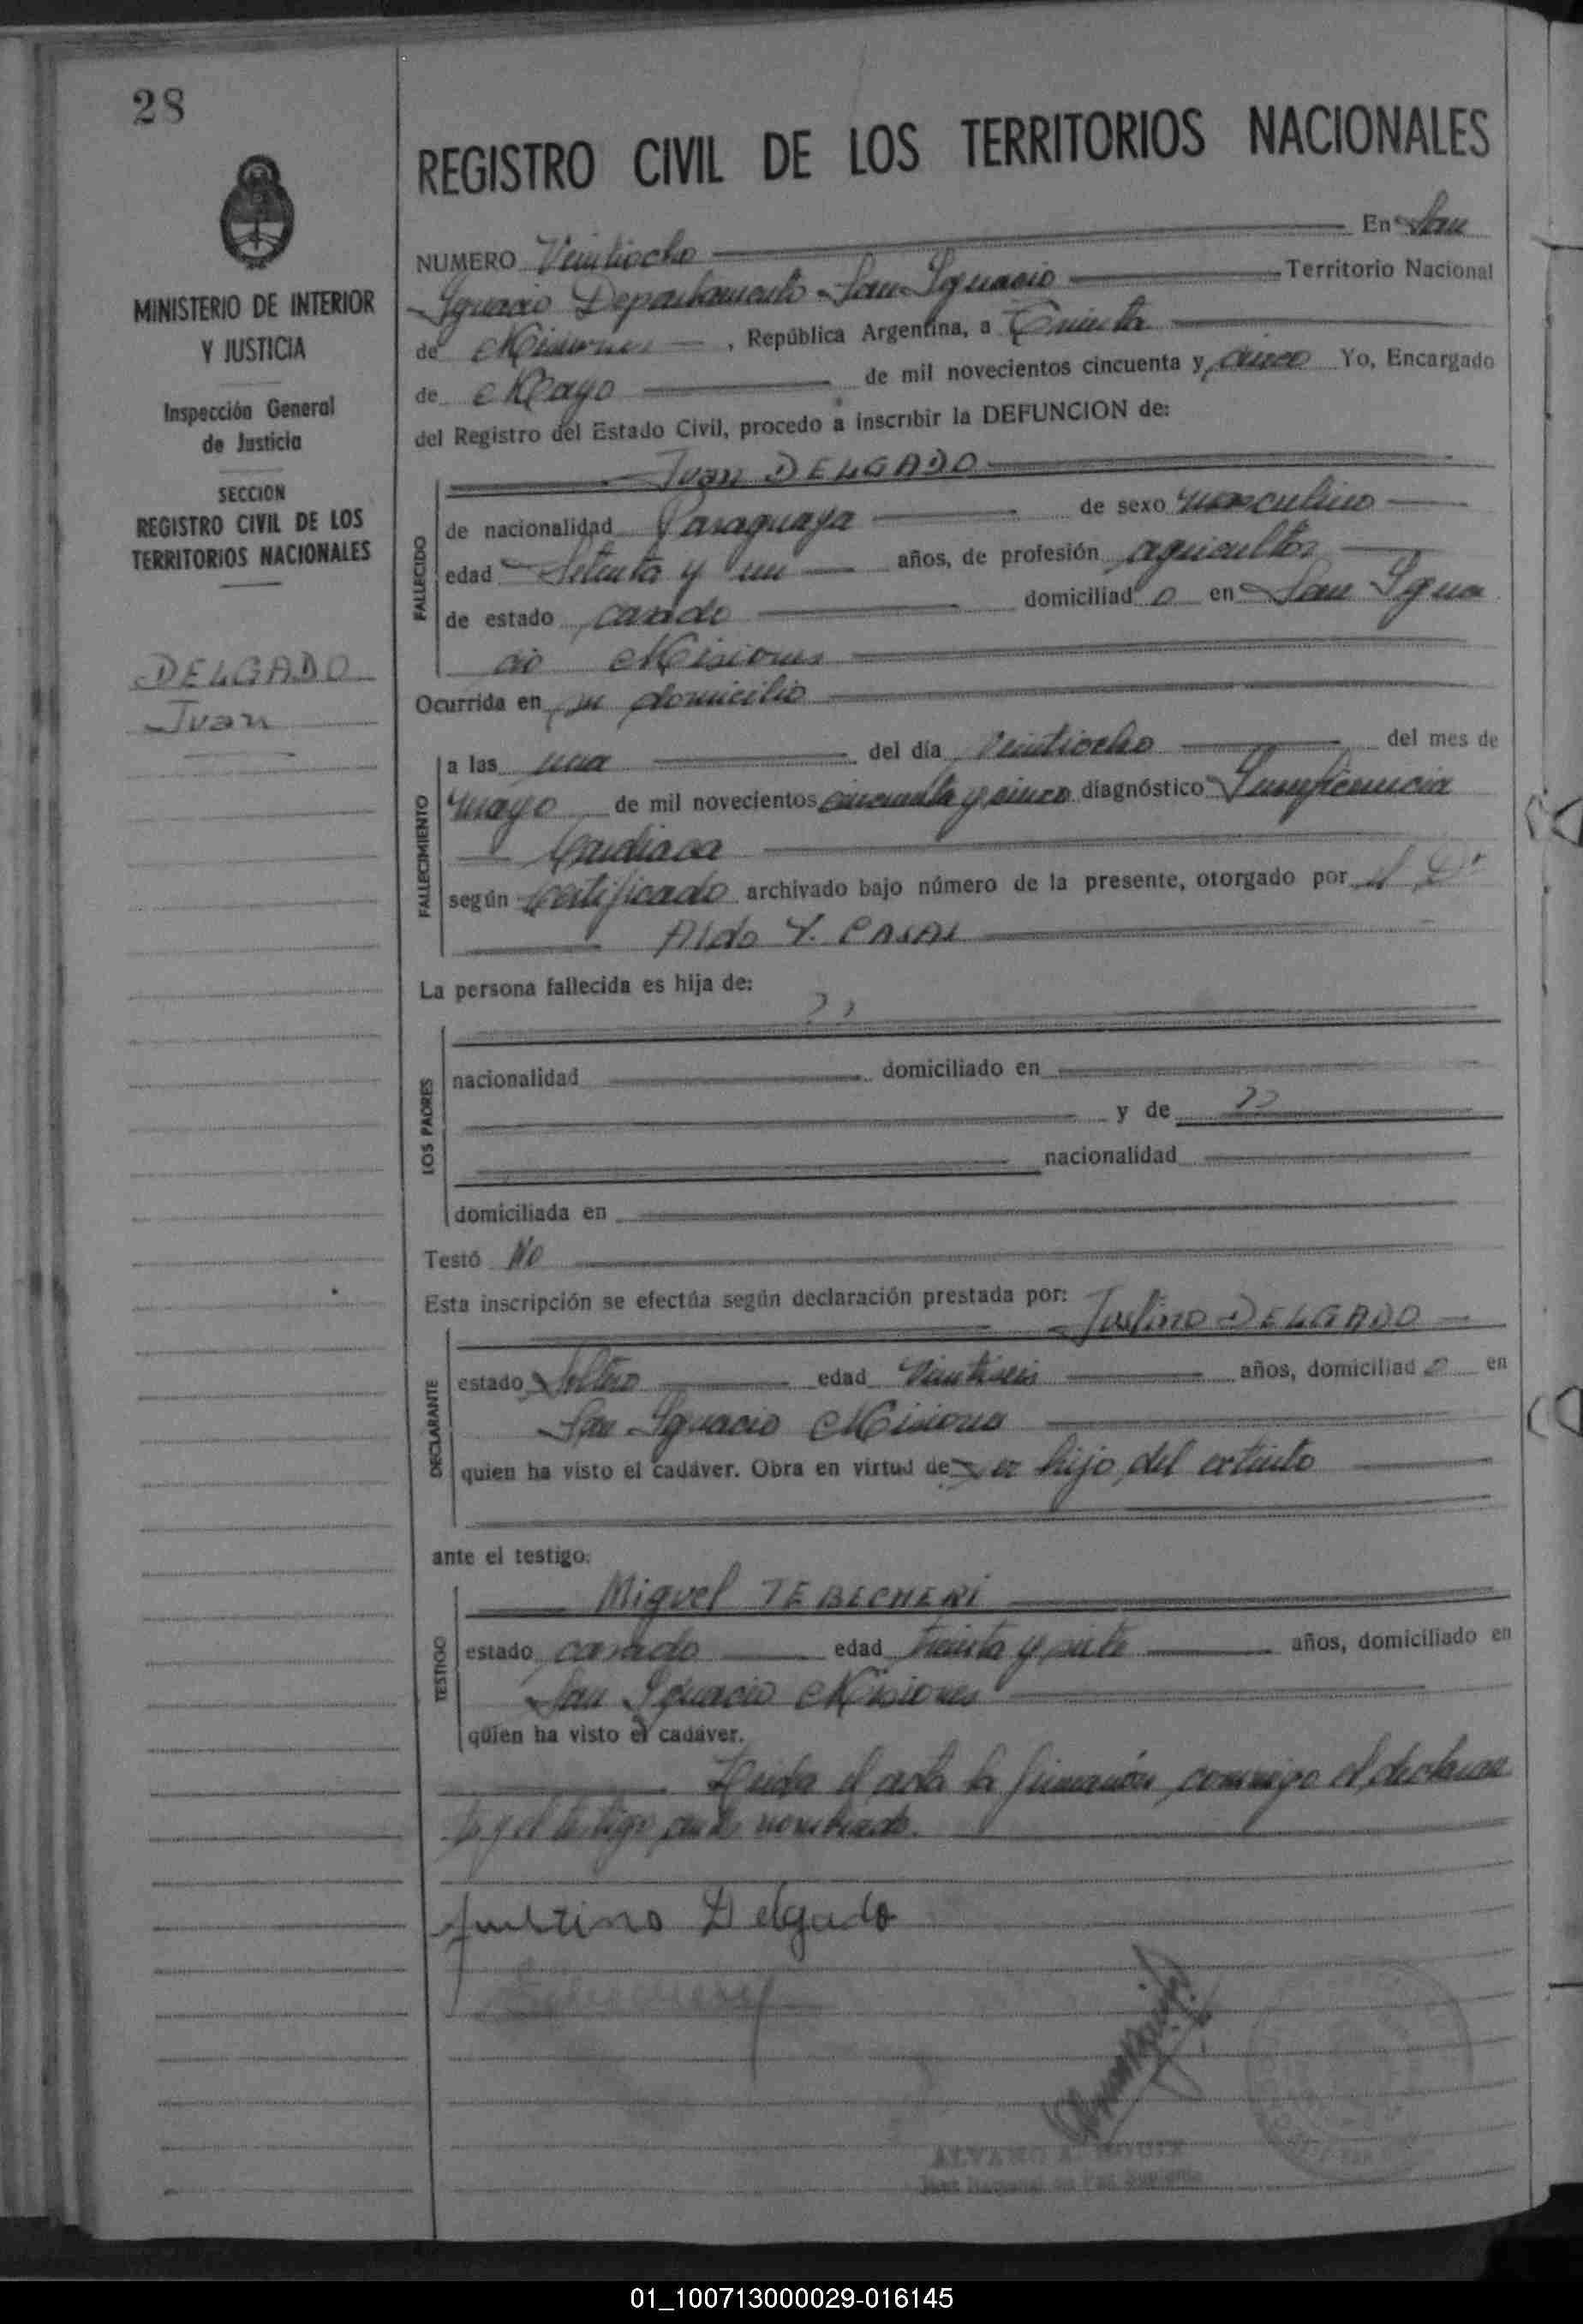 28
MINISTERIO DE INTERIOR
Y JUSTICIA
Inspección General
de Justicia
SECCION
REGISTRO CIVIL DE LOS
TERRITORIOS NACIONALES
DELGADO
Juan
REGISTRO CIVIL DE LOS TERRITORIOS NACIONALES
NUMERO Veintiocho En San
Ignacio Departamento San Ignacio Territorio Nacional
de Misiones, República Argentina, a Treinta
de Mayo de mil novecientos cincuenta y cinco Yo, Encargado
del Registro del Estado Civil, procedo a inscribir la DEFUNCION de:
FALLECIDO
Juan DELGADO
de nacionalidad Paraguaya de sexo masculino
edad Setenta y un años, de profesión agricultor
de estado casado domiciliado en San Igna
cio Misiones
Ocurrida en su domicilio
FALLECIMIENTO
a las una del día veintiocho del mes de
mayo de mil novecientos cincuenta y cinco diagnóstico Insuficiencia
Cardiaca
según certificado archivado bajo número de la presente, otorgado por el Dr
Aldo Y. CASAL
La persona fallecida es hija de:
LOS PADRES
??
nacionalidad domiciliado en
y de ??
nacionalidad
domiciliada en
Testó No
Esta inscripción se efectúa según declaración prestada por:
DECLARANTE
Justino DELGADO
estado Soltero edad Veintiseis años, domiciliado en
San Ignacio Misiones
quien ha visto el cadáver. Obra en virtud de ser hijo del extinto
ante el testigo:
TESTIGO
Miguel TEBECHERI
estado casado edad treinta y siete años, domiciliado en
San Ignacio Misiones
quien ha visto el cadáver.
Leida el acta la firmarón conmigo el declaran
te y el testigo ante nombrado.
Justino Delgado
ALVARO A.
01_100713000029-016145